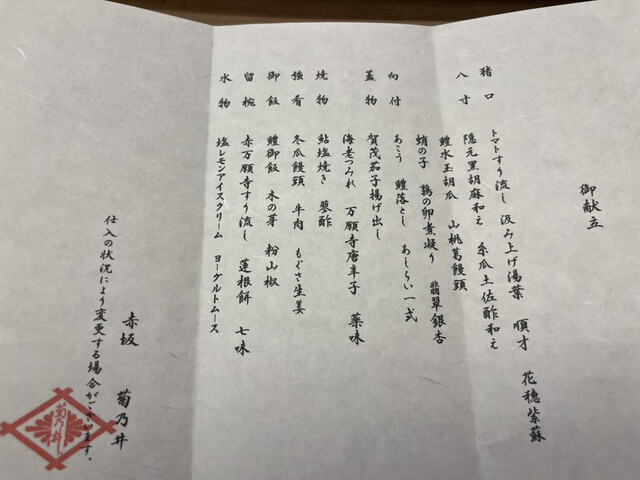 御献立
猪口 トマトすり流し 汲み上げ湯葉 順才 花穂紫蘇
八寸 隠元黒胡麻和え 糸瓜土佐酢和え
鱧水玉胡瓜 山桃葛饅頭
蛸の子 鶏の卵煮凝り 翡翠銀杏
向付 あこう 鱧落とし あしらい一式
蓋物 賀茂茄子揚げ出し
海老つみれ 万願寺唐辛子 薬味
焼物 鮎塩焼き 蓼酢
強肴 冬瓜饅頭 牛肉 もぐさ生姜
御飯 鱧御飯 木の芽 粉山椒
留椀 赤万願寺すり流し 蓮根餅 七味
水物 塩レモンアイスクリーム ヨーグルトムース
仕入の状況により変更する場合がございます。
赤坂 菊乃井
菊乃井